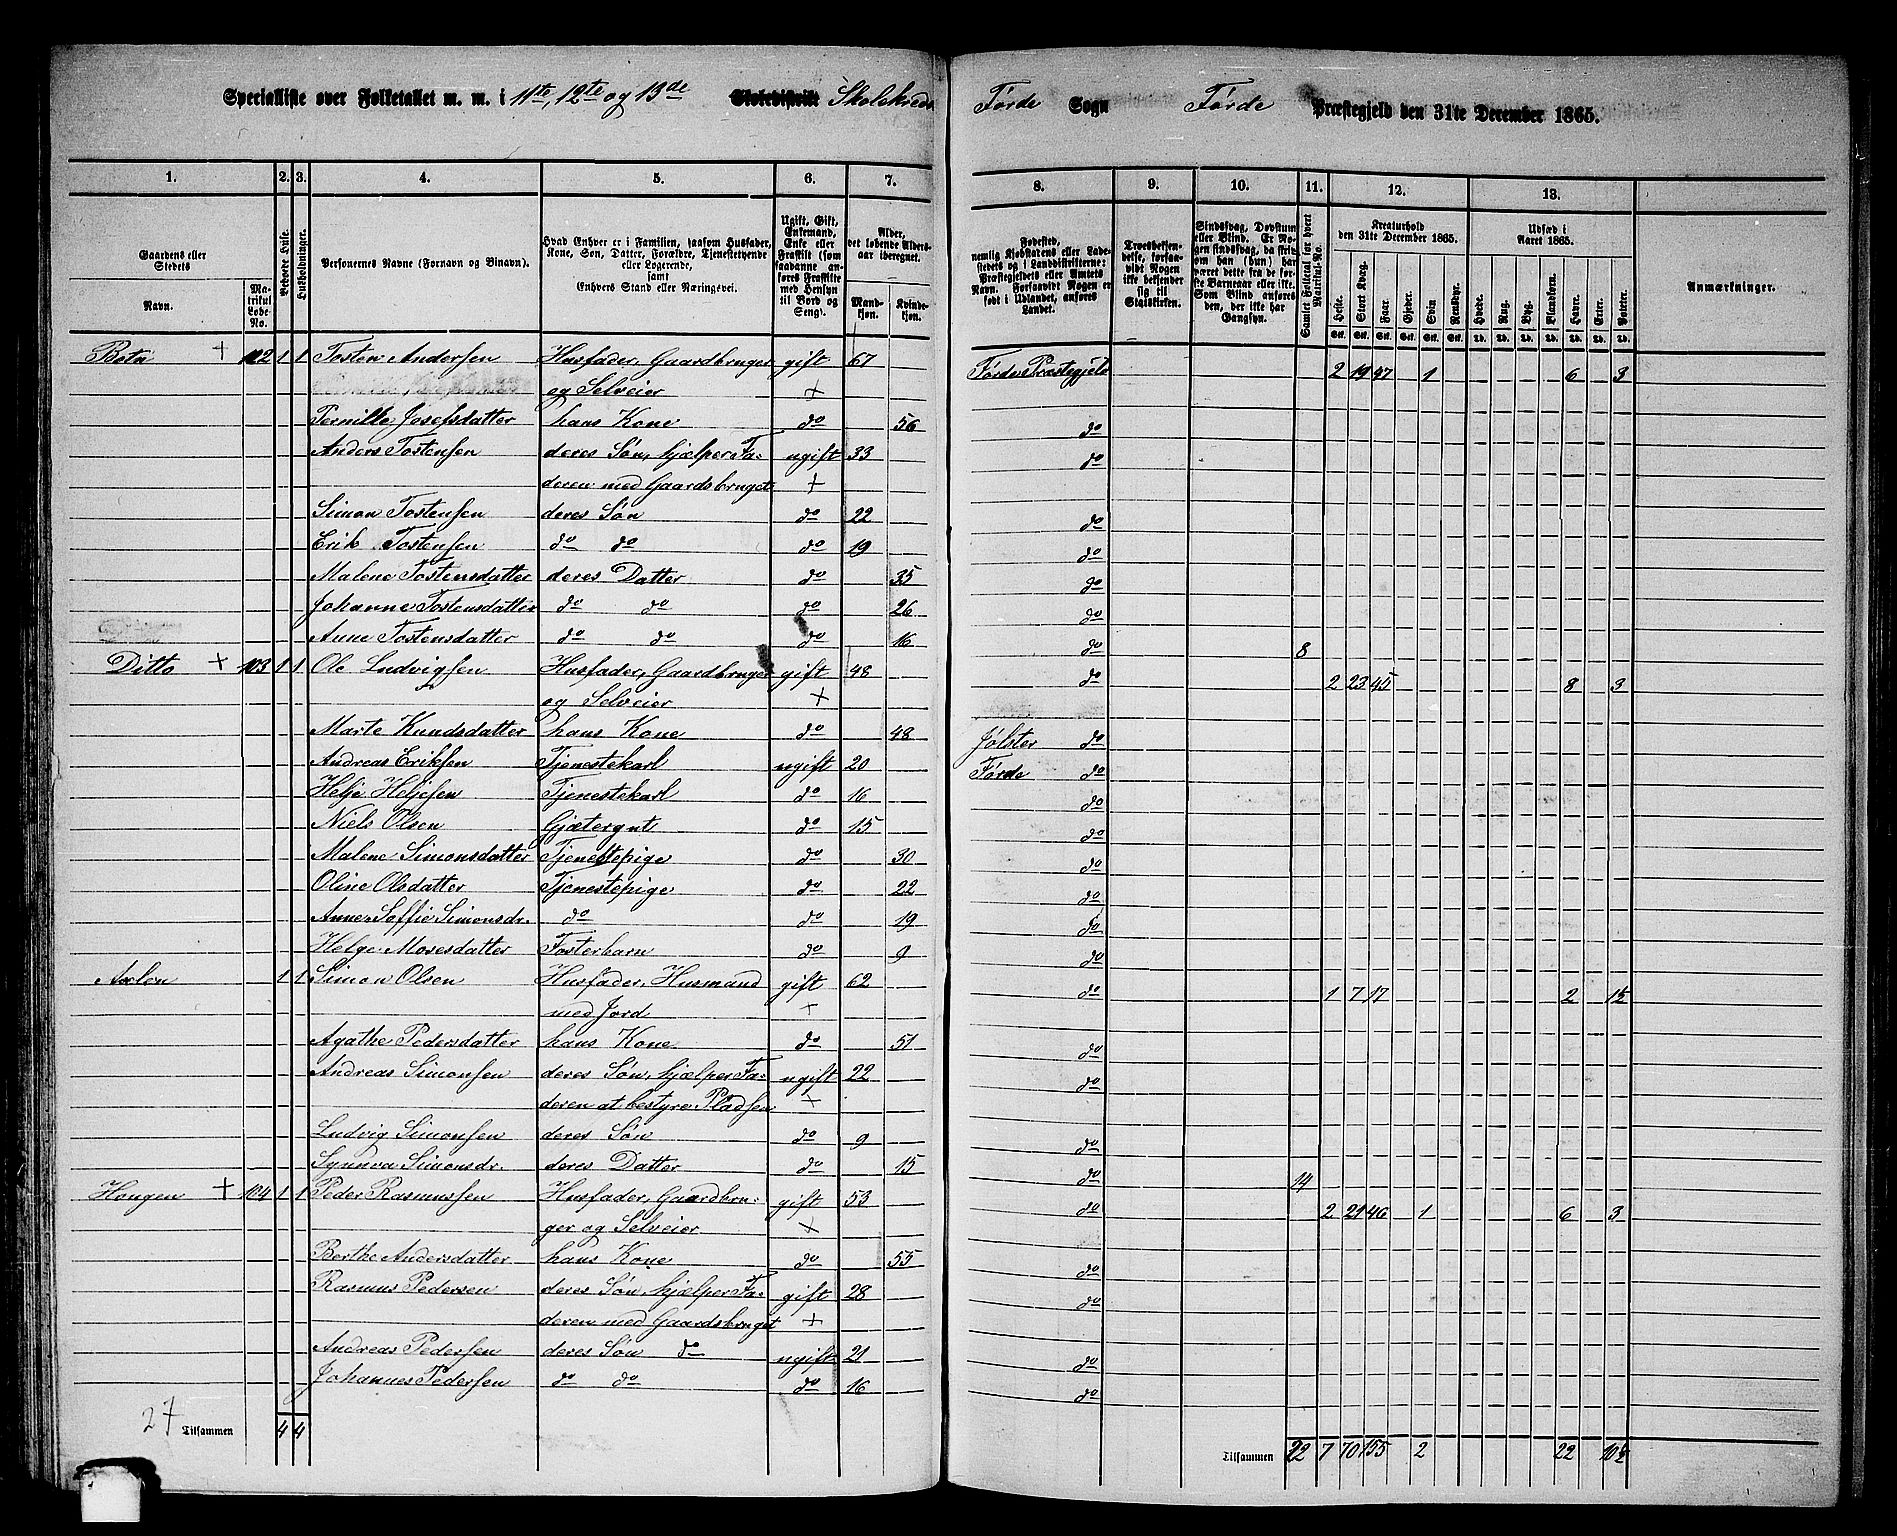 Specialliste over Folketallet m. m. i 11te, 12te og 13de Skoledistrikt Skolekreds Førde Sogn Førde Præstegjeld den 31te December 1865.
1. 2. 3. 4. 5. 6. 7. 8. 9. 10. 11. 12. 13.
Gaardens eller Stedets
Navn. Matrikul Løbe-No.
Beboede Huse.
Husholdninger.
Personernes Navne (Fornavn og Binavn).
Hvad Enhver er i Familien, saasom Husfader, Kone, Søn, Datter, Forældre, Tjenestetyende eller Logerende, samt Enhvers Stand eller Næringsvei.
Ugift, Gift, Enkemand, Enke eller Fraskilt (som saadanne anføres Fraskilte med Hensyn til Bord og Seng).
Alder, det løbende Alders-aar iberegnet.
Mandkjøn. Kvindekjøn.
Fødested, nemlig Kjøbstadens eller Ladestedets og i Landdistrikterne: Præstegjeldets eller Amtets Navn. Forsaavidt Nogen er født i Udlandet, anføres Landet.
Troesbekjendelse, forsaavidt Nogen ikke bekjender sig til Statskirken.
Sindssvag, Døvstum eller Blind. Er Nogen sindssvag, da skrives om han (hun) har været dette fra de første Barneaar eller ikke. Som Blind anføres den, der ikke har Gangsyn.
Samlet Folketal for hvert Matrikul-No.
Kreaturhold den 31te December 1865.
Heste. Stort Kvæg. Faar. Gjeder. Sviin Rensdyr.
Udsæd i Aaret 1865.
Hvede. Rug. Byg. Blandkorn. Havre. Erter. Poteter.
Anmærkninger.
Botn + 102 1 1 Tosten Andersen Husfader, Gaardbruger gift 67 Førde Præstegjeld 2 19 47 1 6 3
og Selveier +
Pernille Josefsdatter hans Kone do 56 do
Anders Tostensen deres Søn, hjælper Fa- ugift 33 do
deren med Gaardsbruget +
Simon Tostensen deres Søn do 22 do
Erik Tostensen do do do 19 do
Malene Tostensdatter deres Datter do 35 do
Johanne Tostensdatter do do do 26 do
Anne Tostensdatter do do do 16 do 8
Ditto + 103 1 1 Ole Ludvigsen Husfader, Gaardbruger gift 48 do 2 23 45 8 3
og Selveier +
Marte Knudsdatter hans Kone do 48 Jølster do
Andreas Eriksen Tjenestekarl ugift 20 Førde do
Helje Heljesen Tjenestekarl do 16 do
Niels Olsen Gjætergut do 15 do
Malene Simonsdatter Tjenestepige do 30 do
Oline Olsdatter Tjenestepige do 22 do
Anne Soffie Simonsdr. do do 19 do
Helge Mosesdatter Fosterbarn do 9 do
Axlen 1 1 Simon Olsen Husfader, Husmand gift 62 do 1 7 17 2 1½
med Jord +
Agathe Pedersdatter hans Kone do 51 do
Andreas Simonsen deres Søn, hjælper Fa- ugift 22 do
deren at bestyre Pladsen +
Ludvig Simonsen deres Søn do 9 do
Synnva Simonsdr. deres Datter do 15 do 14
Hougen + 104 1 1 Peder Rasmussen Husfader, Gaardbru- gift 53 do 2 21 46 1 6 3
ger og Selveier +
Berthe Andersdatter hans Kone do 55 do
Rasmus Pedersen deres Søn, hjælper Fa- gift 28 do
deren med Gaardsbruget +
Andreas Pedersen deres Søn do ugift 21 do
Johannes Pedersen do do do 16 do
27 Tilsammen 4 4 Tilsammen 22 7 70 155 2 22 10½